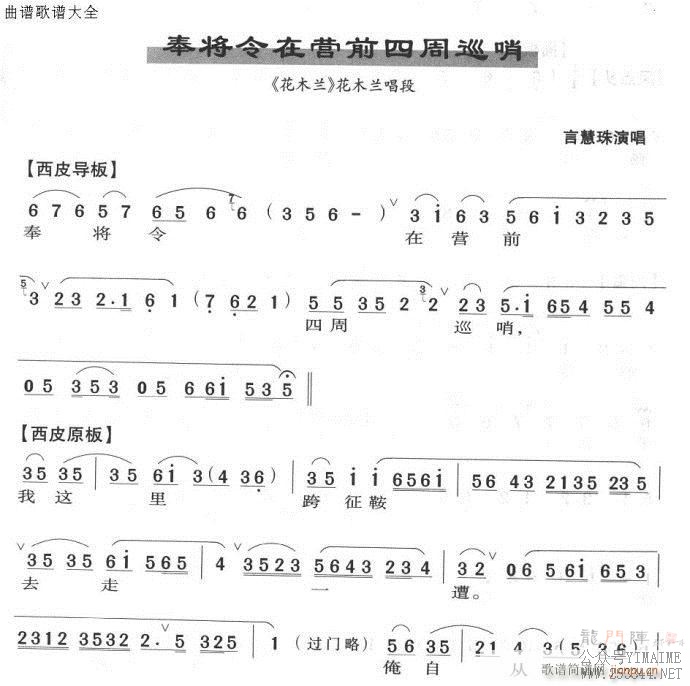 曲谱歌谱大全
奉将令在营前四周巡哨
《花木兰》花木兰唱段
言慧珠演唱
【西皮导板】
6 7 6 5 7 6 5 6 6 7 6 ( 3 5 6 - ) ∨ 3 i 6 3 5 6 i 3 2 3 5
奉 将 令 在 营 前
5 3 ∨ 2 3 2·1 6 1 ( 7 6 2 1 ) 5 5 3 5 2 3 2 ∨ 2 3 5·i 6 5 4 5 5 4
四 周 巡 哨，
0 5 3 5 3 0 5 6 6 i 5 3 5
【西皮原板】
3 5 3 5 | 3 5 6 i 3 ( 4 3 6 ) | 3 5 i i 6 5 6 i | 5 6 4 3 2 1 3 5 2 3 5
我 这 里 跨 征 鞍
∨ 3 5 3 5 6 i 5 6 5 | 4 ∨ 3 5 2 3 5 6 4 3 2 3 4 | 3 2 ∨ 0 6 5 6 i 6 5 3
去 走 一 遭。
2 3 1 2 3 5 3 2 2· 5 3 2 5 | 1 (过门略) 5 6 3 5 | 2 1 4 3 ( 5 3 6 )
俺 自 从
龍門陣
公众号YIMAIME
歌谱简谱网